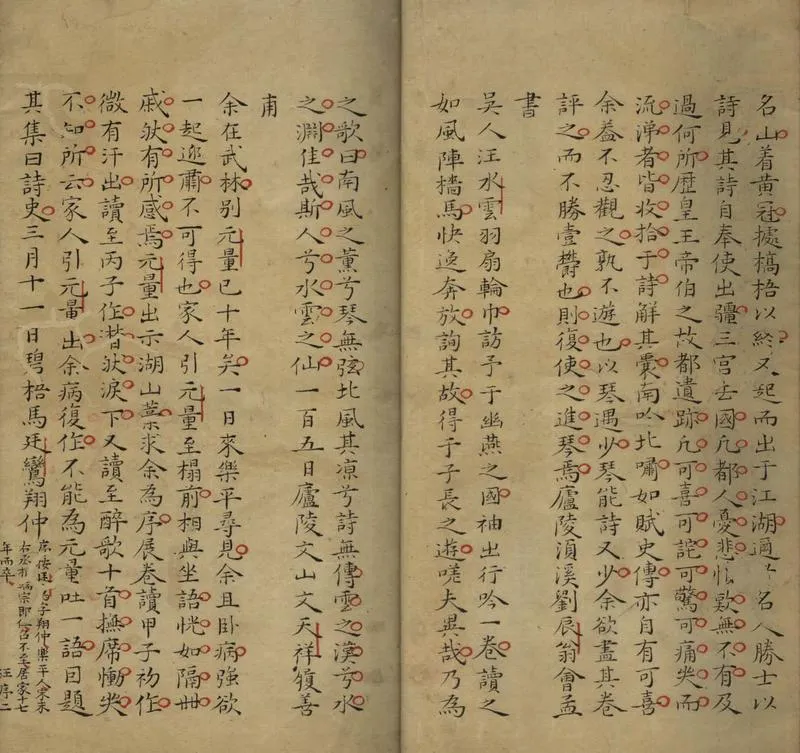 名山着黄冠據槁梧以終又起而出于江湖邇〻名人勝士以
詩見其詩自奉使出疆三宮去國凡都人憂悲恨歎無不有及
過何所歴皇王帝伯之故都遺跡凡可喜可詫可驚可痛哭而
流涕者皆收拾于詩解其囊南吟北嘯如賦史傳亦自有可喜
余蓋不忍觀之孰不遊也以琴遇少琴能詩又少余欲盡其卷
評之而不勝壹鬱也則復使之進琴焉廬陵湏溪劉辰翁會孟
書
吳人汪水雲羽扇輪巾訪予于幽燕之國袖出行吟一卷讀之
如風陣檣馬快逸奔放詢其故得于子長之遊嗟夫異哉乃為
之歌曰南風之薫兮琴無弦北風其凉兮詩無傳雲之漢兮水
之淵佳哉斯人兮水雲之仙一百五日廬陵文山文天祥履善
甫
余在武林别元量已十年矣一日來樂平尋見余且卧病強欲
一起迎肅不可得也家人引元量至榻前相與坐語恍如隔丗
戚然有所感焉元量出示湖山藁求余為序展卷讀甲子初作
微有汗出讀至丙子作潸然淚下又讀至醉歌十首撫席慟哭
不知所云家人引元量出余病復作不能為元量吐一語因題
其集曰詩史三月十一日碧梧馬廷鸞翔仲
字翔仲樂平人宋末
右丞相端宗即位召不至居家十七
年而卒
汪序二